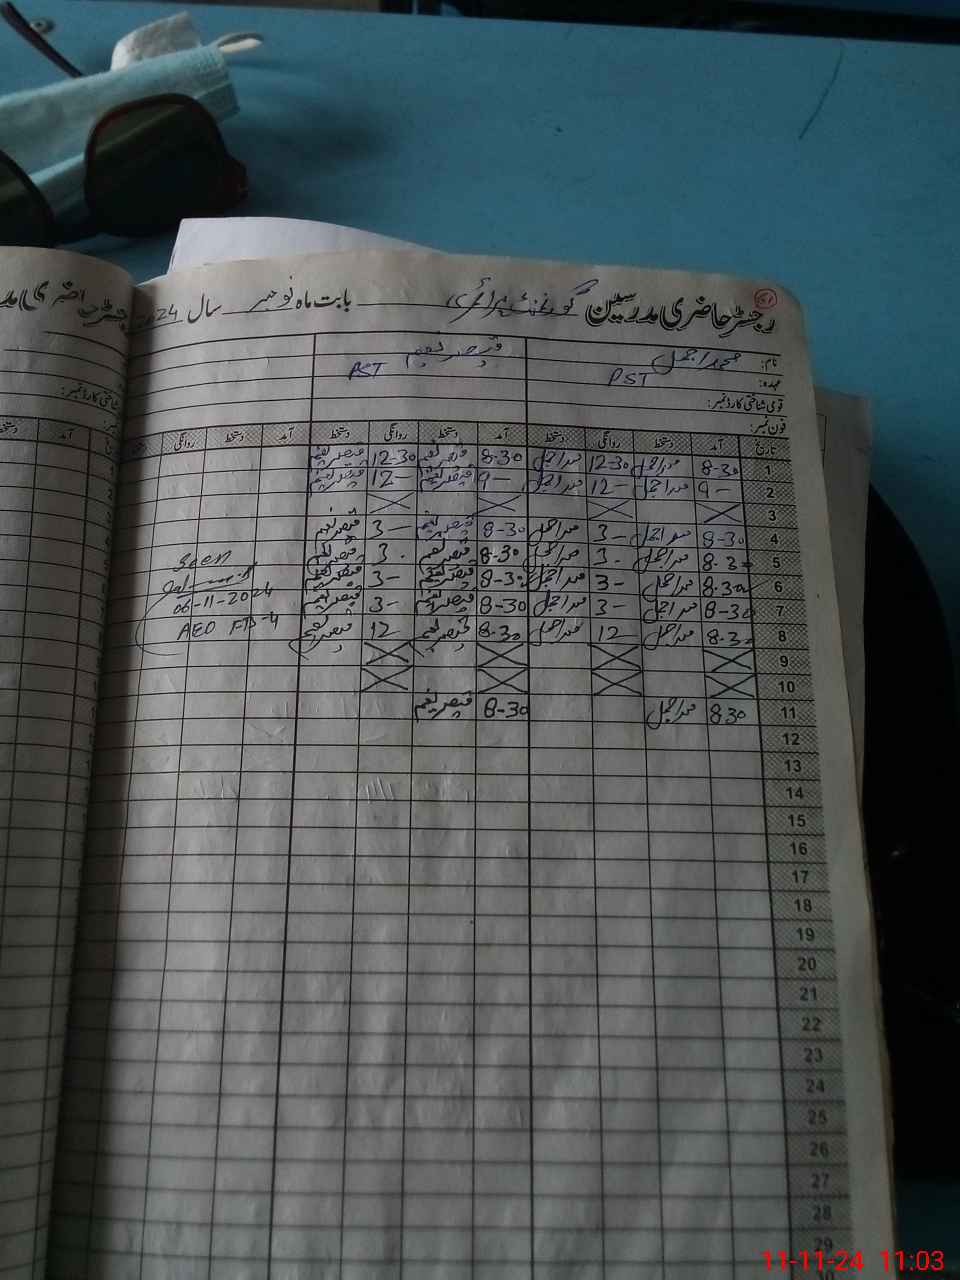 رجسٹر حاضری مدرسین گورنمنٹ پرائمری بابت ماہ نومبر سال 2024
نام: محمد اجمل قیصر نعیم
عہدہ: PST PST
قومی شناختی کارڈ نمبر:
فون نمبر:
تاریخ آمد دستخط روانگی دستخط آمد دستخط روانگی دستخط آمد دستخط روانگی
1 8-30 محمد اجمل 12-30 محمد اجمل 8-30 قیصر نعیم 12-30 قیصر نعیم
2 9- محمد اجمل 12- محمد اجمل 9- قیصر نعیم 12- قیصر نعیم
3
4 8-30 محمد اجمل 3- محمد اجمل 8-30 قیصر نعیم 3- قیصر نعیم
5 8.30 محمد اجمل 3. محمد اجمل 8-30 قیصر نعیم 3. قیصر نعیم
6 8.30 محمد اجمل 3- محمد اجمل 8-30 قیصر نعیم 3- قیصر نعیم
7 8-30 محمد اجمل 3- محمد اجمل 8-30 قیصر نعیم 3- قیصر نعیم
8 8.30 محمد اجمل 12 محمد اجمل 8.30 قیصر نعیم 12 قیصر نعیم
9
10
11 8 30 محمد اجمل 8-30 قیصر نعیم
12
13
14
15
16
17
18
19
20
21
22
23
24
25
26
27
28
29
Seen
06-11-2024
AEO
رجسٹر حاضری
آمد
11-11-24 11:03